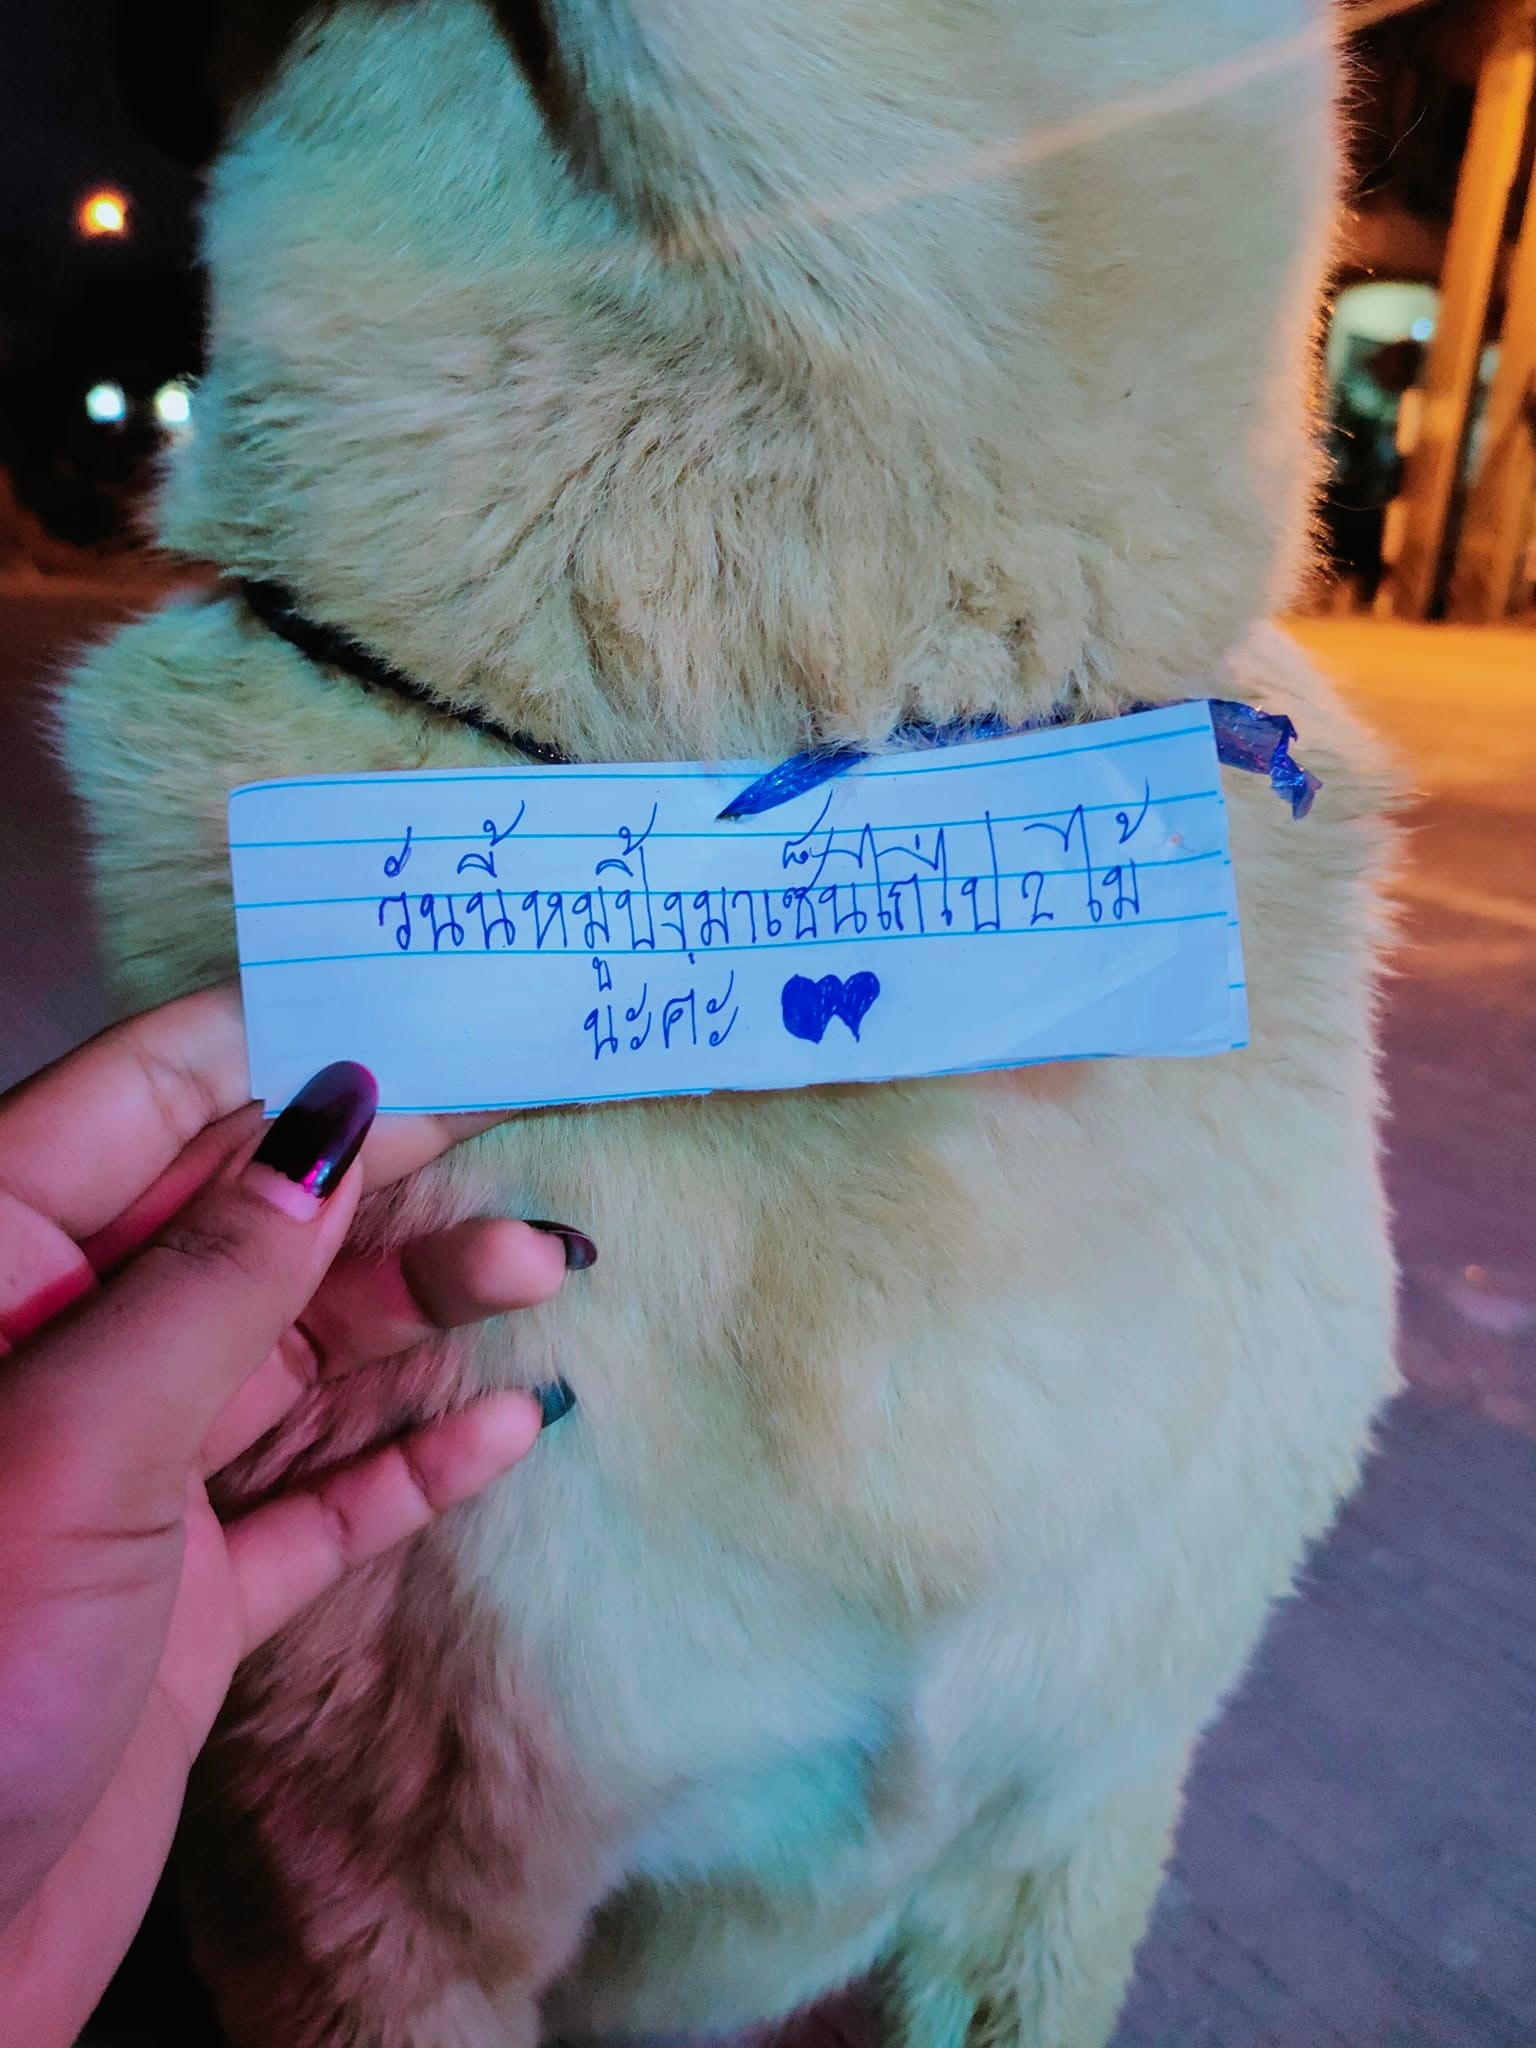 วันนี้หมูปิ้งมาเซ็นไก่ไป 2 ไม้
นะคะ